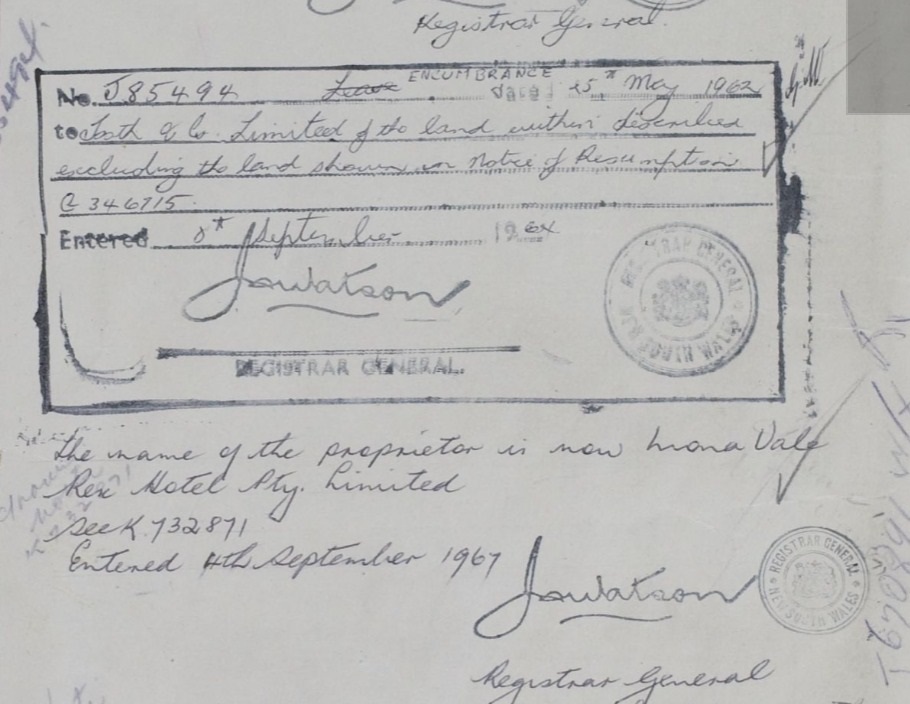 Registrar General.
No. J85494 Lease ENCUMBRANCE dated 25th May 1962
to Tooth & Co. Limited of the land within described
excluding the land shown in Notice of Resumption
G 346715
Entered 8th September 1964
JaWatson
REGISTRAR GENERAL.
REGISTRAR GENERAL NEW SOUTH WALES
The name of the proprietor is now Mona Vale
Rex Hotel Pty. Limited
See K732871
Entered 4th September 1967
JaWatson
REGISTRAR GENERAL NEW SOUTH WALES
Registrar General